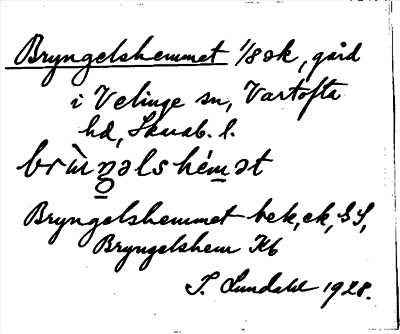 Bryngelshemmet 1/8 ok, gård
i Velinge sn, Vartofta
hd, Skarab. l.
brùŋəlshémət
Bryngelshemmet bek, ek, GS,
Bryngelshem Kb
I. Lundahl 1928.